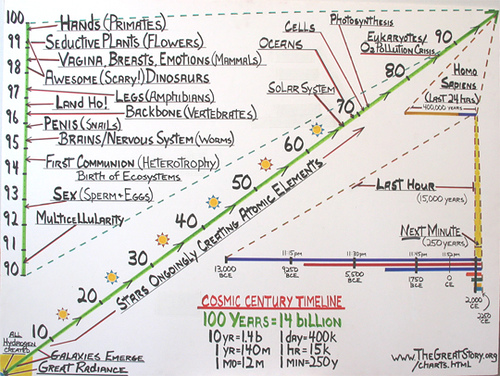 100
99
98
97
96
95
94
93
92
91
90
Hands (Primates)
Seductive Plants (Flowers)
Vagina, Breasts, Emotions (Mammals)
Awesome (Scary!) Dinosaurs
Legs (Amphibians)
Land Ho!
Backbone (Vertebrates)
Penis (Snails)
Brains/Nervous System (Worms)
First Communion (Heterotrophy)
Birth of Ecosystems
Sex (Sperm + Eggs)
Multicellularity
Photosynthesis
Cells
Oceans
Eukaryotes/
O2 Pollution Crisis
Solar System
90
80
70
60
50
40
30
20
10
Stars Ongoingly Creating Atomic Elements
Homo
Sapiens
(Last 24 hrs)
400,000 years
Last Hour
(15,000 years)
Next Minute
(250 years)
11:15pm
11:30pm
11:45pm
11:52pm
13,000
BCE
9250
BCE
5,500
BCE
1750
BCE
0
CE
2,000
CE
2250
CE
Cosmic Century Timeline
100 Years = 14 billion
10 yr = 1.4 b
1 day = 400k
1 yr = 140 m
1 hr = 15k
1 mo = 12 m
1 min = 250 y
All
Hydrogen
Created
Galaxies Emerge
Great Radiance
www.TheGreatStory.org
/charts.html